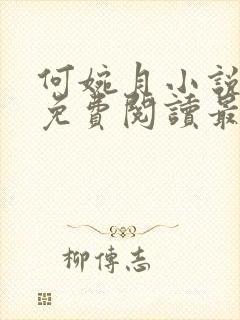 何婉月小說
免費閱讀最
柳傳志